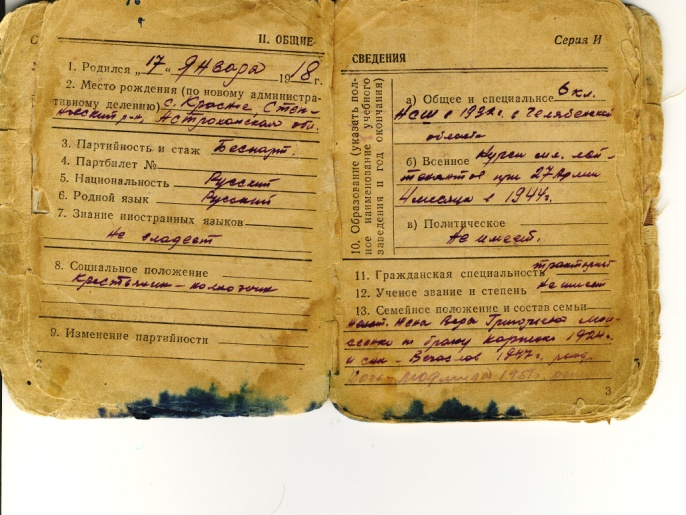 II. ОБЩИЕ
1. Родился „17“ января 1918 г.
2. Место рождения (по новому администра-
тивному делению) с. Красное Степ-
новский р-н, Астраханская обл.
3. Партийность и стаж Беспарт.
4. Партбилет №
5. Национальность Русский
6. Родной язык Русский
7. Знание иностранных языков
Не владеет
8. Социальное положение
Крестьянин-колхозник
9. Изменение партийности
2
Серия И
СВЕДЕНИЯ
10. Образование (указать пол-
ное наименование учебного
заведения и год окончания)
а) Общее и специальное 6 кл.
НСШ в 1932 г. в Челябинской
области
б) Военное Курсы мл. лей-
тенантов при 27 Армии
4 месяца в 1944 г.
в) Политическое
Не имеет.
11. Гражданская специальность тракторист
12. Ученое звание и степень Не имеет
13. Семейное положение и состав семьи
женат. Жена Вера Григорьевна
по браку 1924 г.
и сын - 1947 г. рожд.
Дочь - Людмила 1951 г.
3